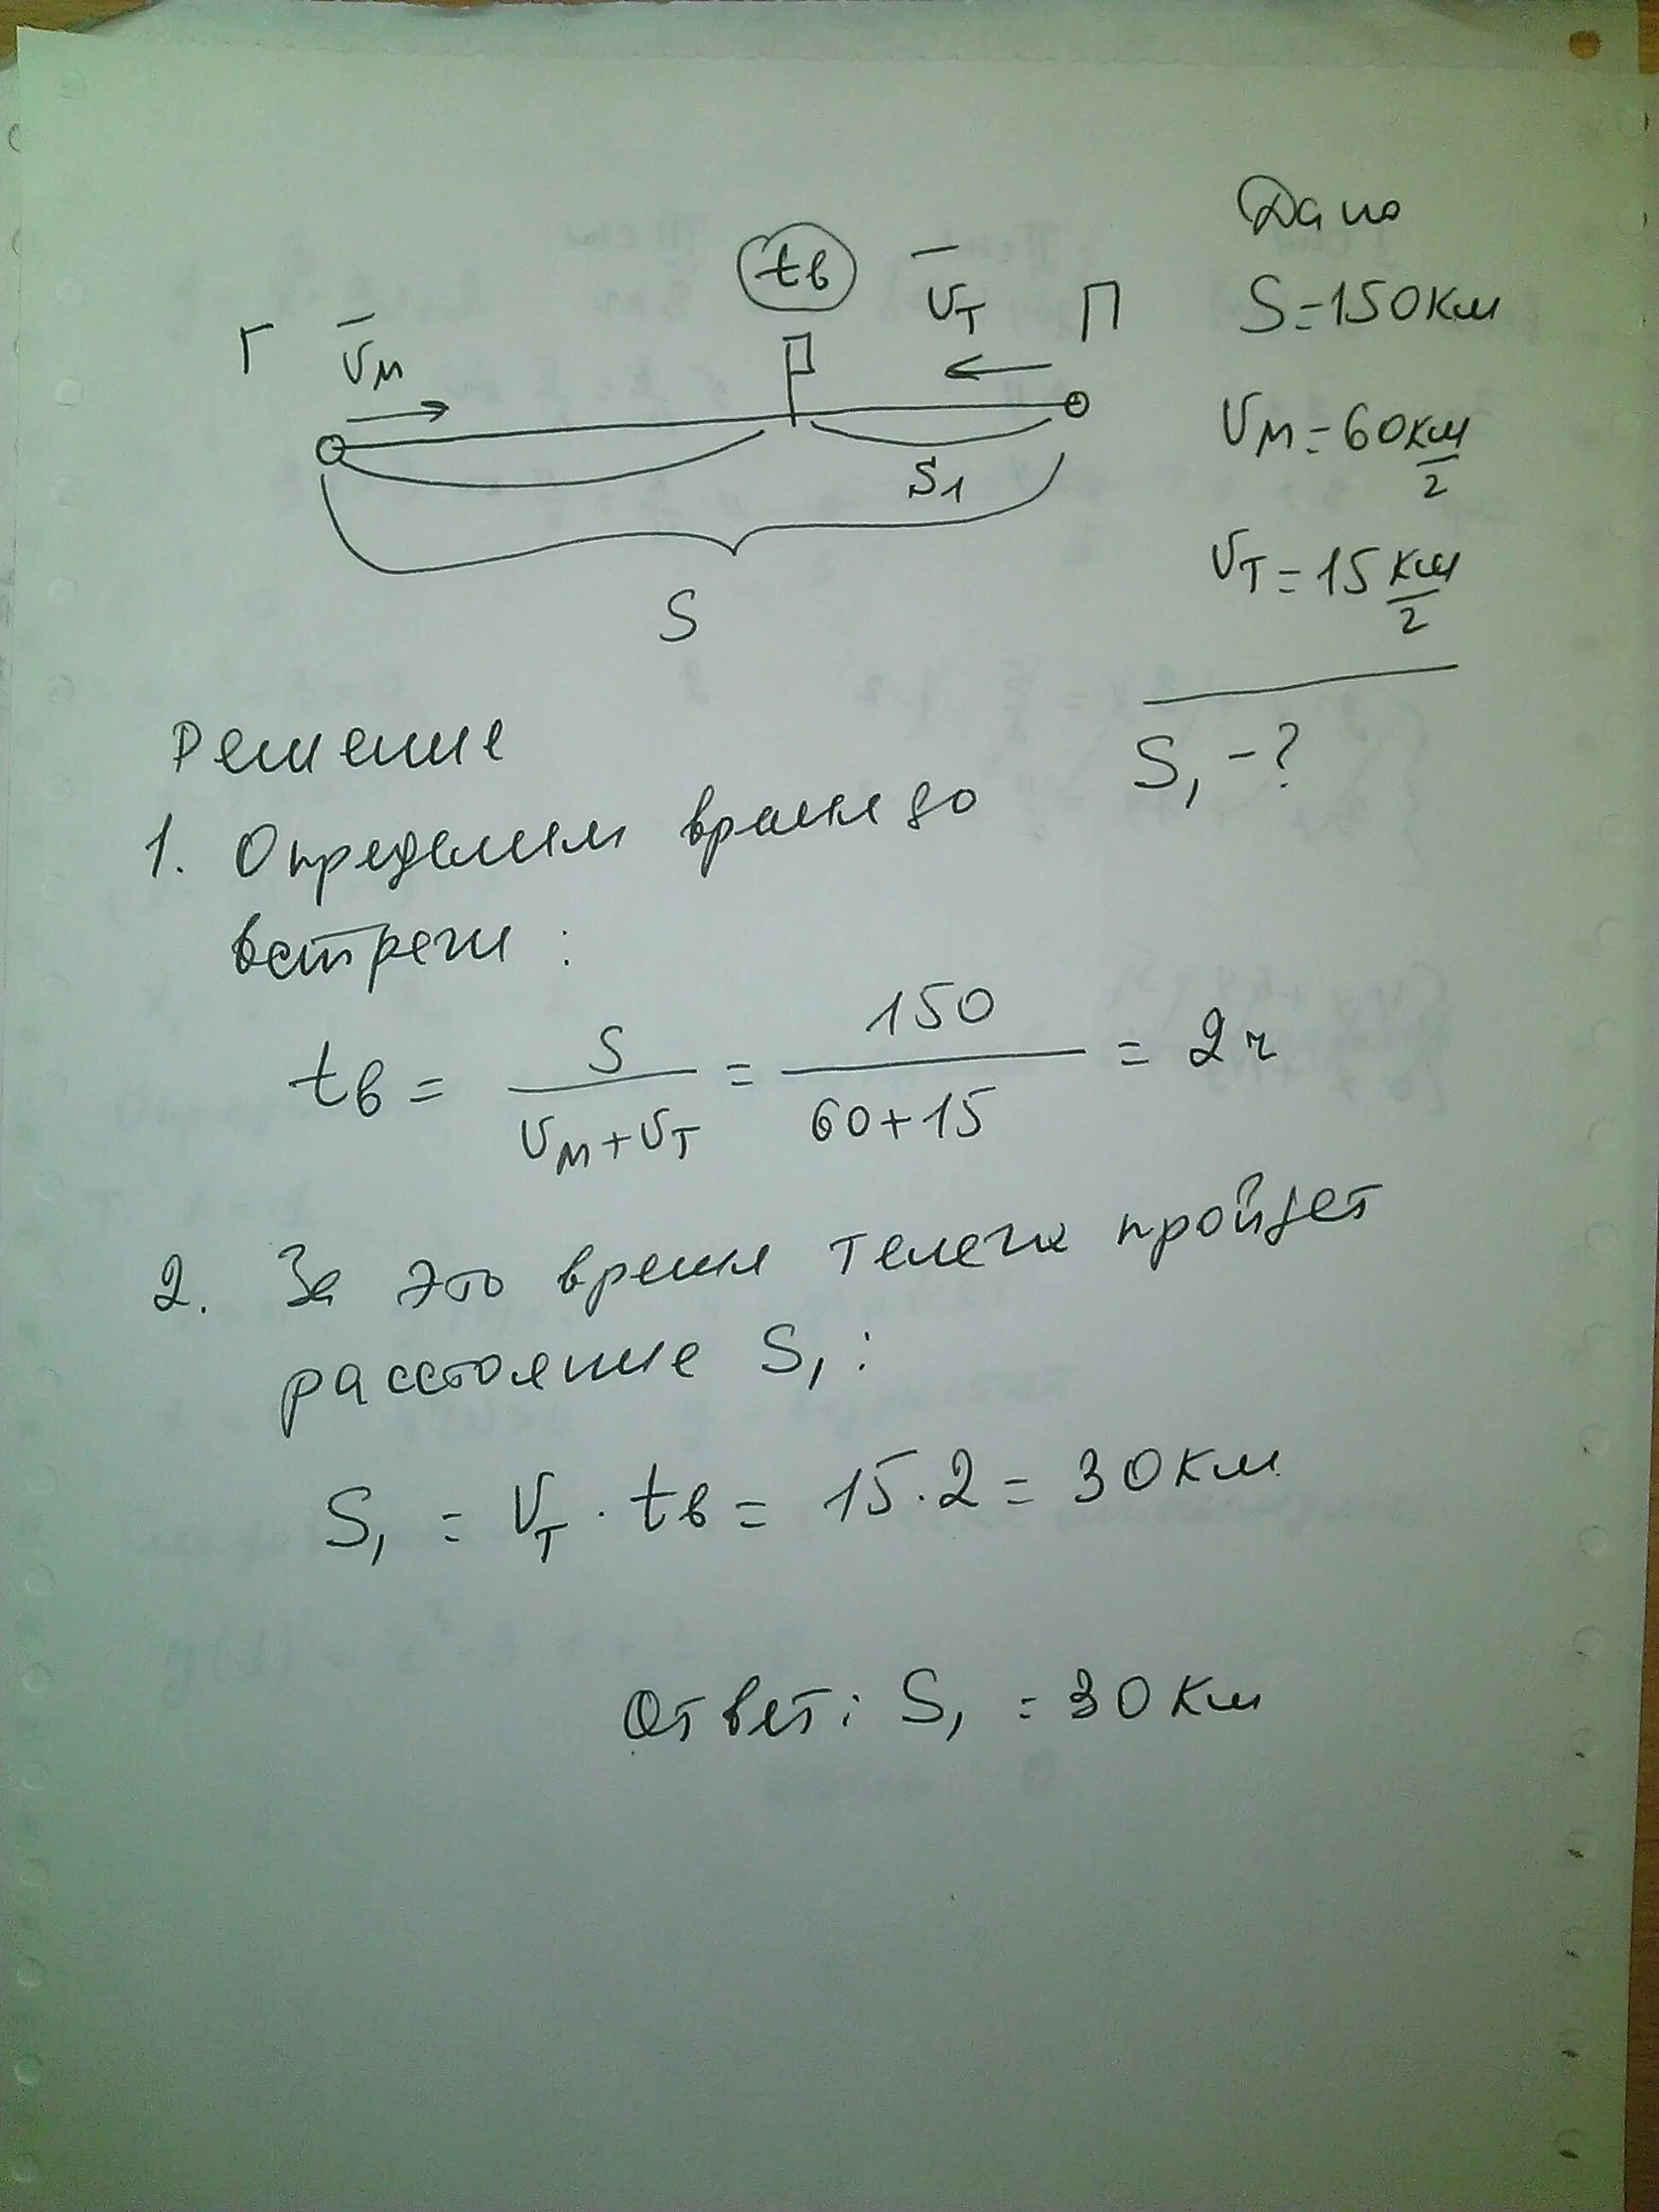 Дано
tв
V̅т
П
S=150км
Г
V̅м
Vм=60 км/г
S1
Vт=15 км/г
S
S1-?
Решение
1. Определим время до
встречи:
tв = S/(Vм+Vт) = 150/(60+15) = 2ч
2. За это время телега пройдет
расстояние S1:
S1 = Vт · tв = 15·2 = 30км
Ответ: S1 = 30км